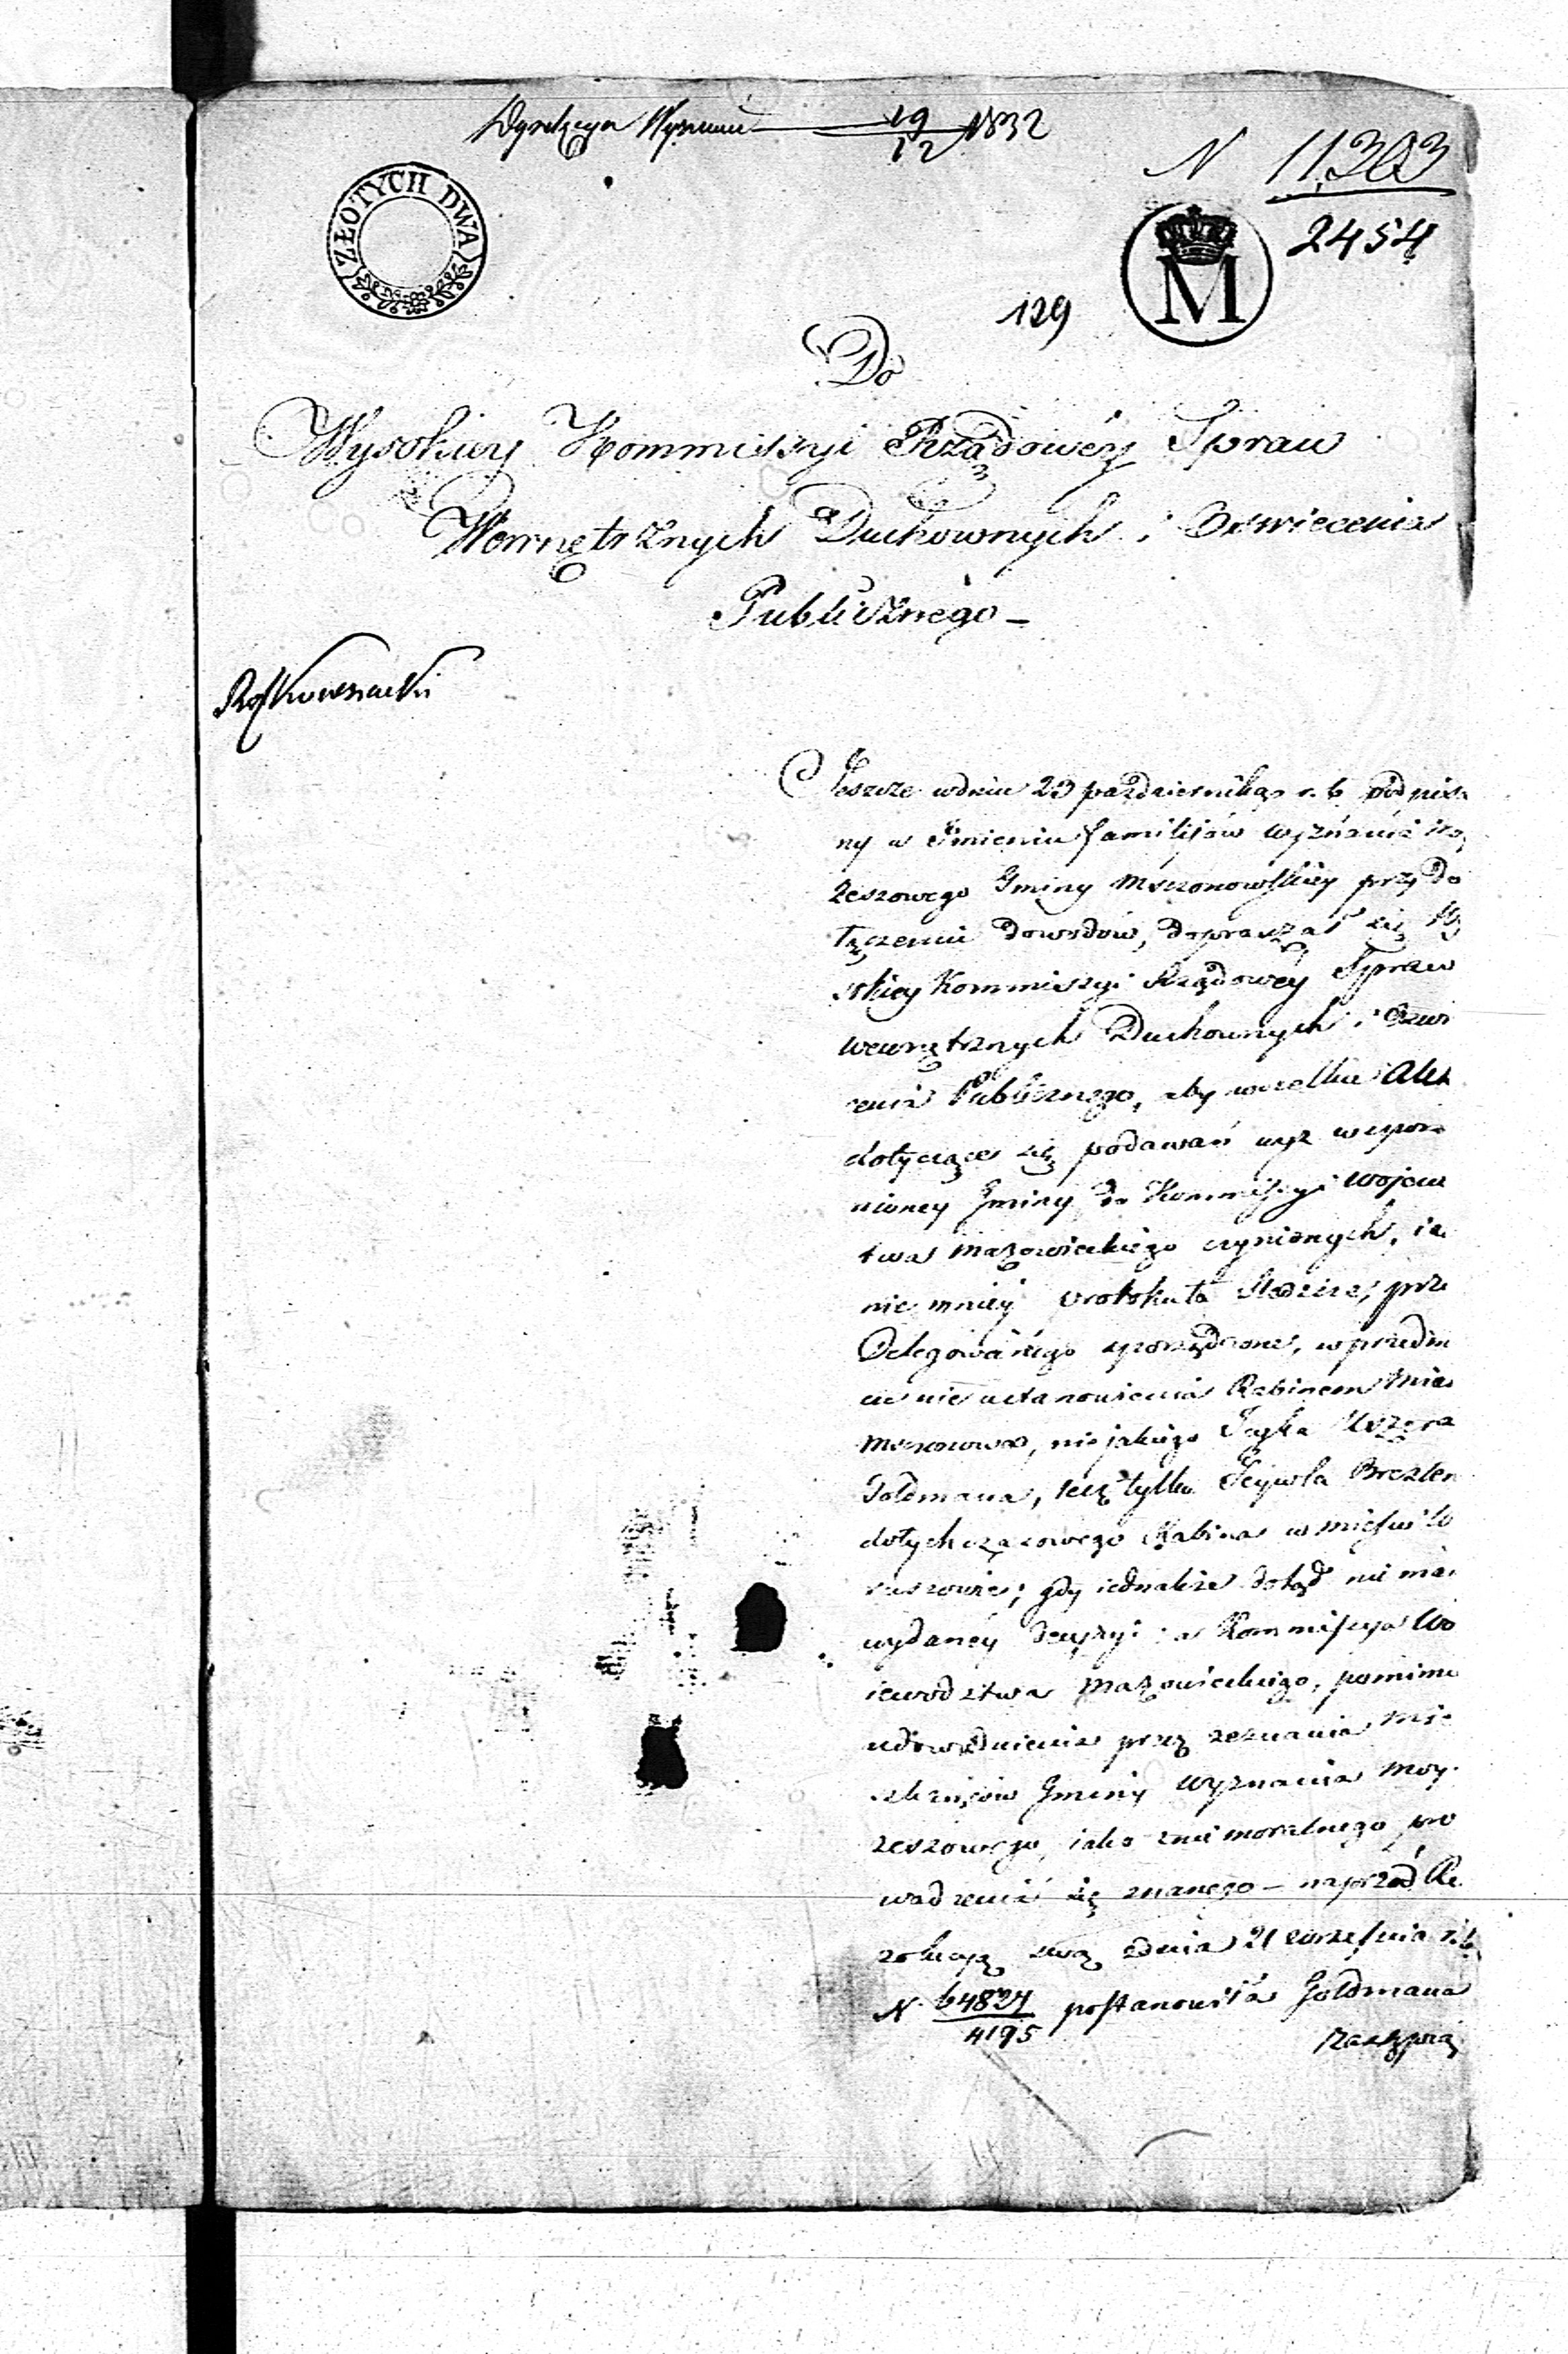 Dyrekcya Wyznań 19/12 1832
N 11303
2454
ZŁOTYCH DWA
M
129
Do
Wysokiey Kommissyi Rządowéy Spraw
Wewnętrznych Duchownych i Oswiecenia
Publicznego -
Jeszcze w dniu 23 pazdziernika r. b podpisa
ny w Imieniu familijów wyznania Moy
żeszowego Gminy Mszczonowskiey przy do
łączeniu dowodów, dopraszał się Wy
sokiey Kommissyi Rządowéy Spraw
wewnętrznych Duchownych i Oswi
cenia Publicznego, aby wszelkie Akta
dotyczące się podawań wyż wspom
nioney Gminy do Kommissyi Wojew
twa Mazowieckiego czynionych, ia
nie mniéy protokuła Sledcze, prze
Delegowanego sporządzone, w przedm
cie nie ustanowienia Rabinem Mias
Mszczonowa, niejakiego Icyka
Goldmana, lecz tylko
dotychczasowego Rabina w mieście
; gdy iednakże dotąd nie ma
wydanéy Decyzyi a Kommissya Wo
iewództwa Mazowieckiego, pomimo
udowodnienia przez zeznania Mie
szkańców Gminy Wyznania Moy
żeszowego, iako z nie moralnego pro
wadzenia się znanego - naprzód Re
zolucyą swą z dnia 21 Września r. b
N. 64827/4195 postanowiła Goldmana